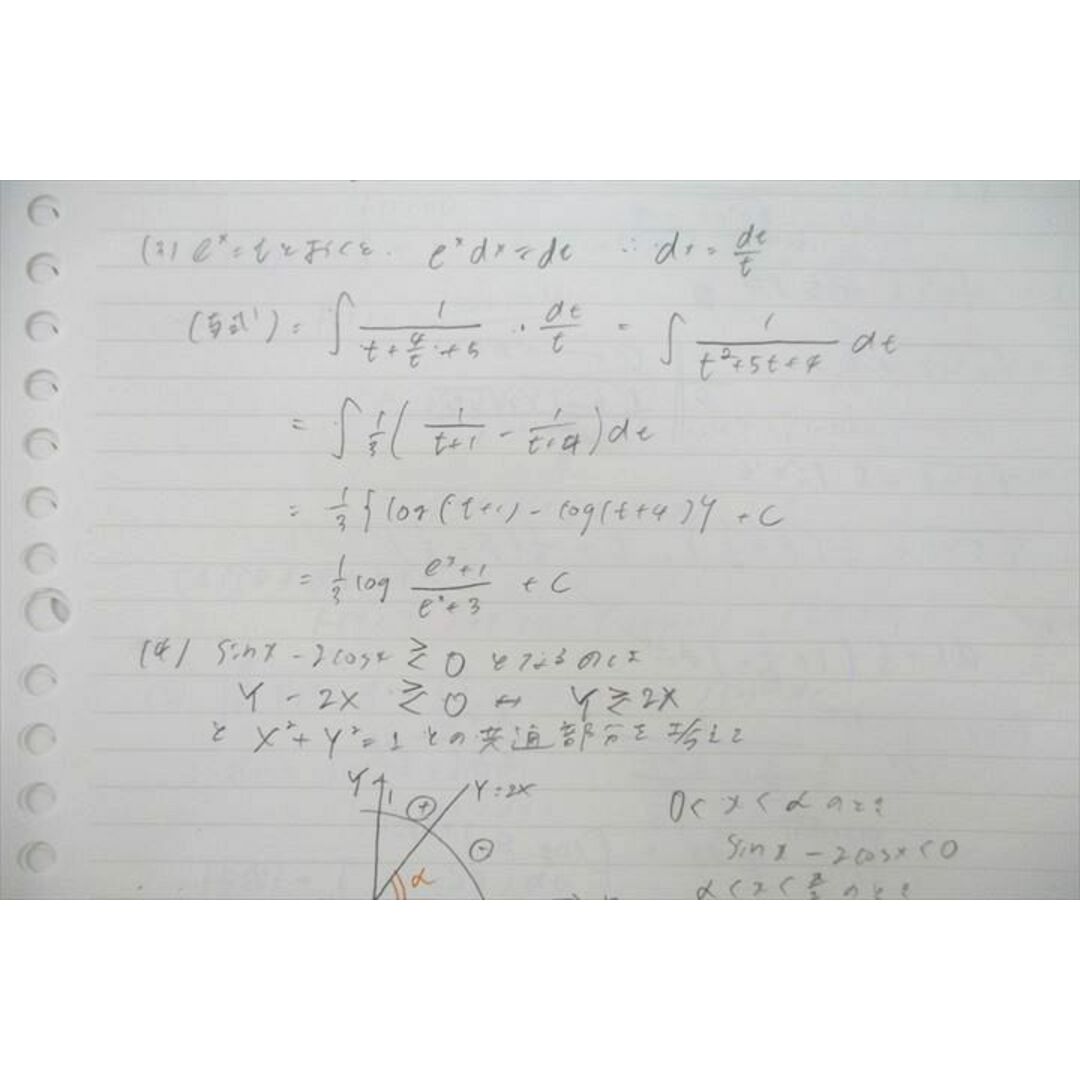 (3) e^x = t とおくと. e^x dx = dt ∴ dx = dt/t
(与式) = ∫ 1/(t + 4/t + 5) · dt/t = ∫ 1/(t²+5t+4) dt
= ∫ 1/3 ( 1/(t+1) - 1/(t+4) ) dt
= 1/3 { log(t+1) - log(t+4) } + C
= 1/3 log (e^x+1)/(e^x+3) + C
(4) sinx - 2cosx ≧ 0 とするのは
Y - 2X ≧ 0 ↔ Y ≧ 2X
と X²+Y²=1 との共通部分を考えて
Y 1 ⊕ Y=2X
⊖
α
0 < x < α のとき
sinx - 2cosx < 0
α < x < π/2 のとき